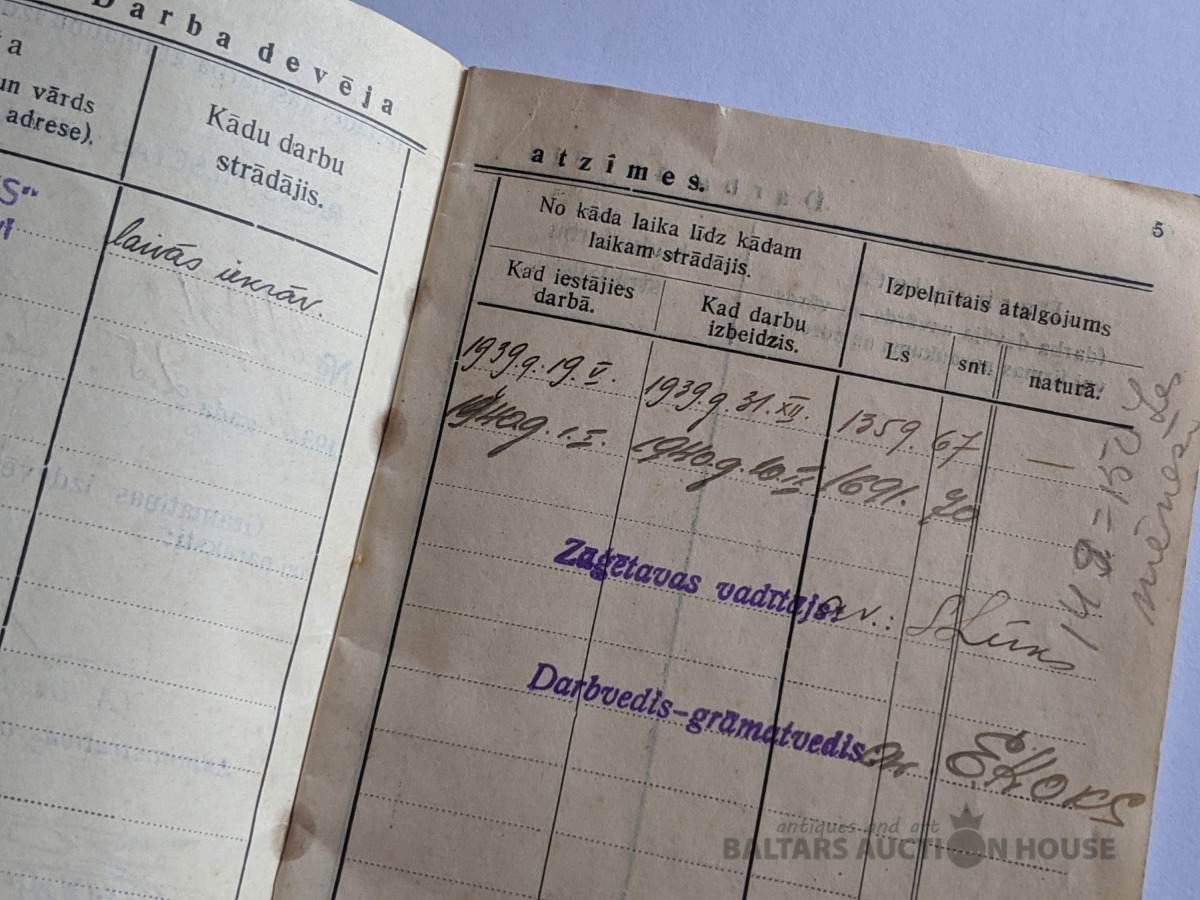 Darba devēja
ta
un vārds
adrese).
Kādu darbu
strādājis.
S"
laivās iekrāv.
atzīmes.
5
No kāda laika līdz kādam
laikam strādājis.
Izpelņītais atalgojums
Kad iestājies
darbā.
Kad darbu
izbeidzis.
Ls
snt.
naturā.
1939.g. 19.V. 1939.g. 31.XII. 1359. 67 —
1940.g. 1.I. 1691. 70
Zāģētavas vadītājs: v.:
Darbvedis-grāmatvedis
149 = 152 Ls
mēnesī
antiques and art
BALTARS AUCTION HOUSE